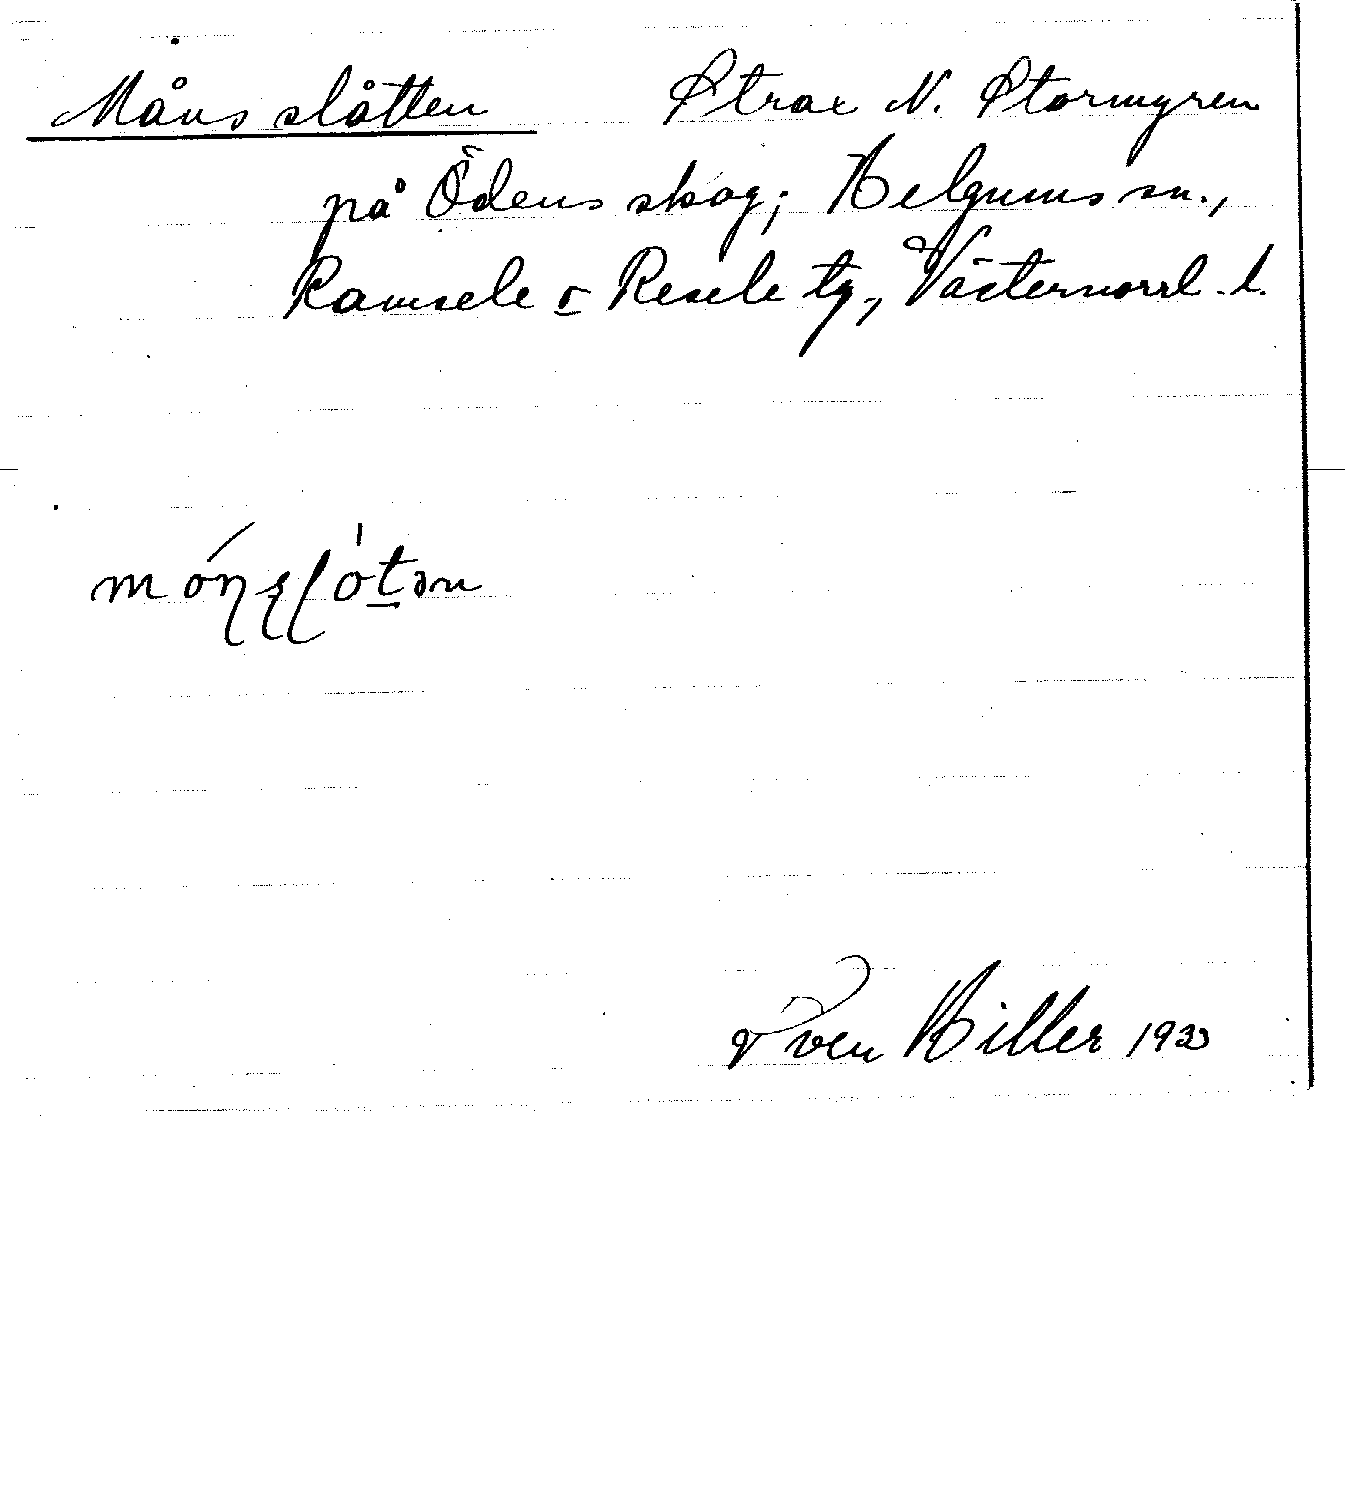 Månsslåtten Strax N. Stormyren
på Ödens skog; Helgums sn.,
Ramsele o Resele tg, Västernorrl. l.
móꞑʂʃótən
Sven Hiller 1933